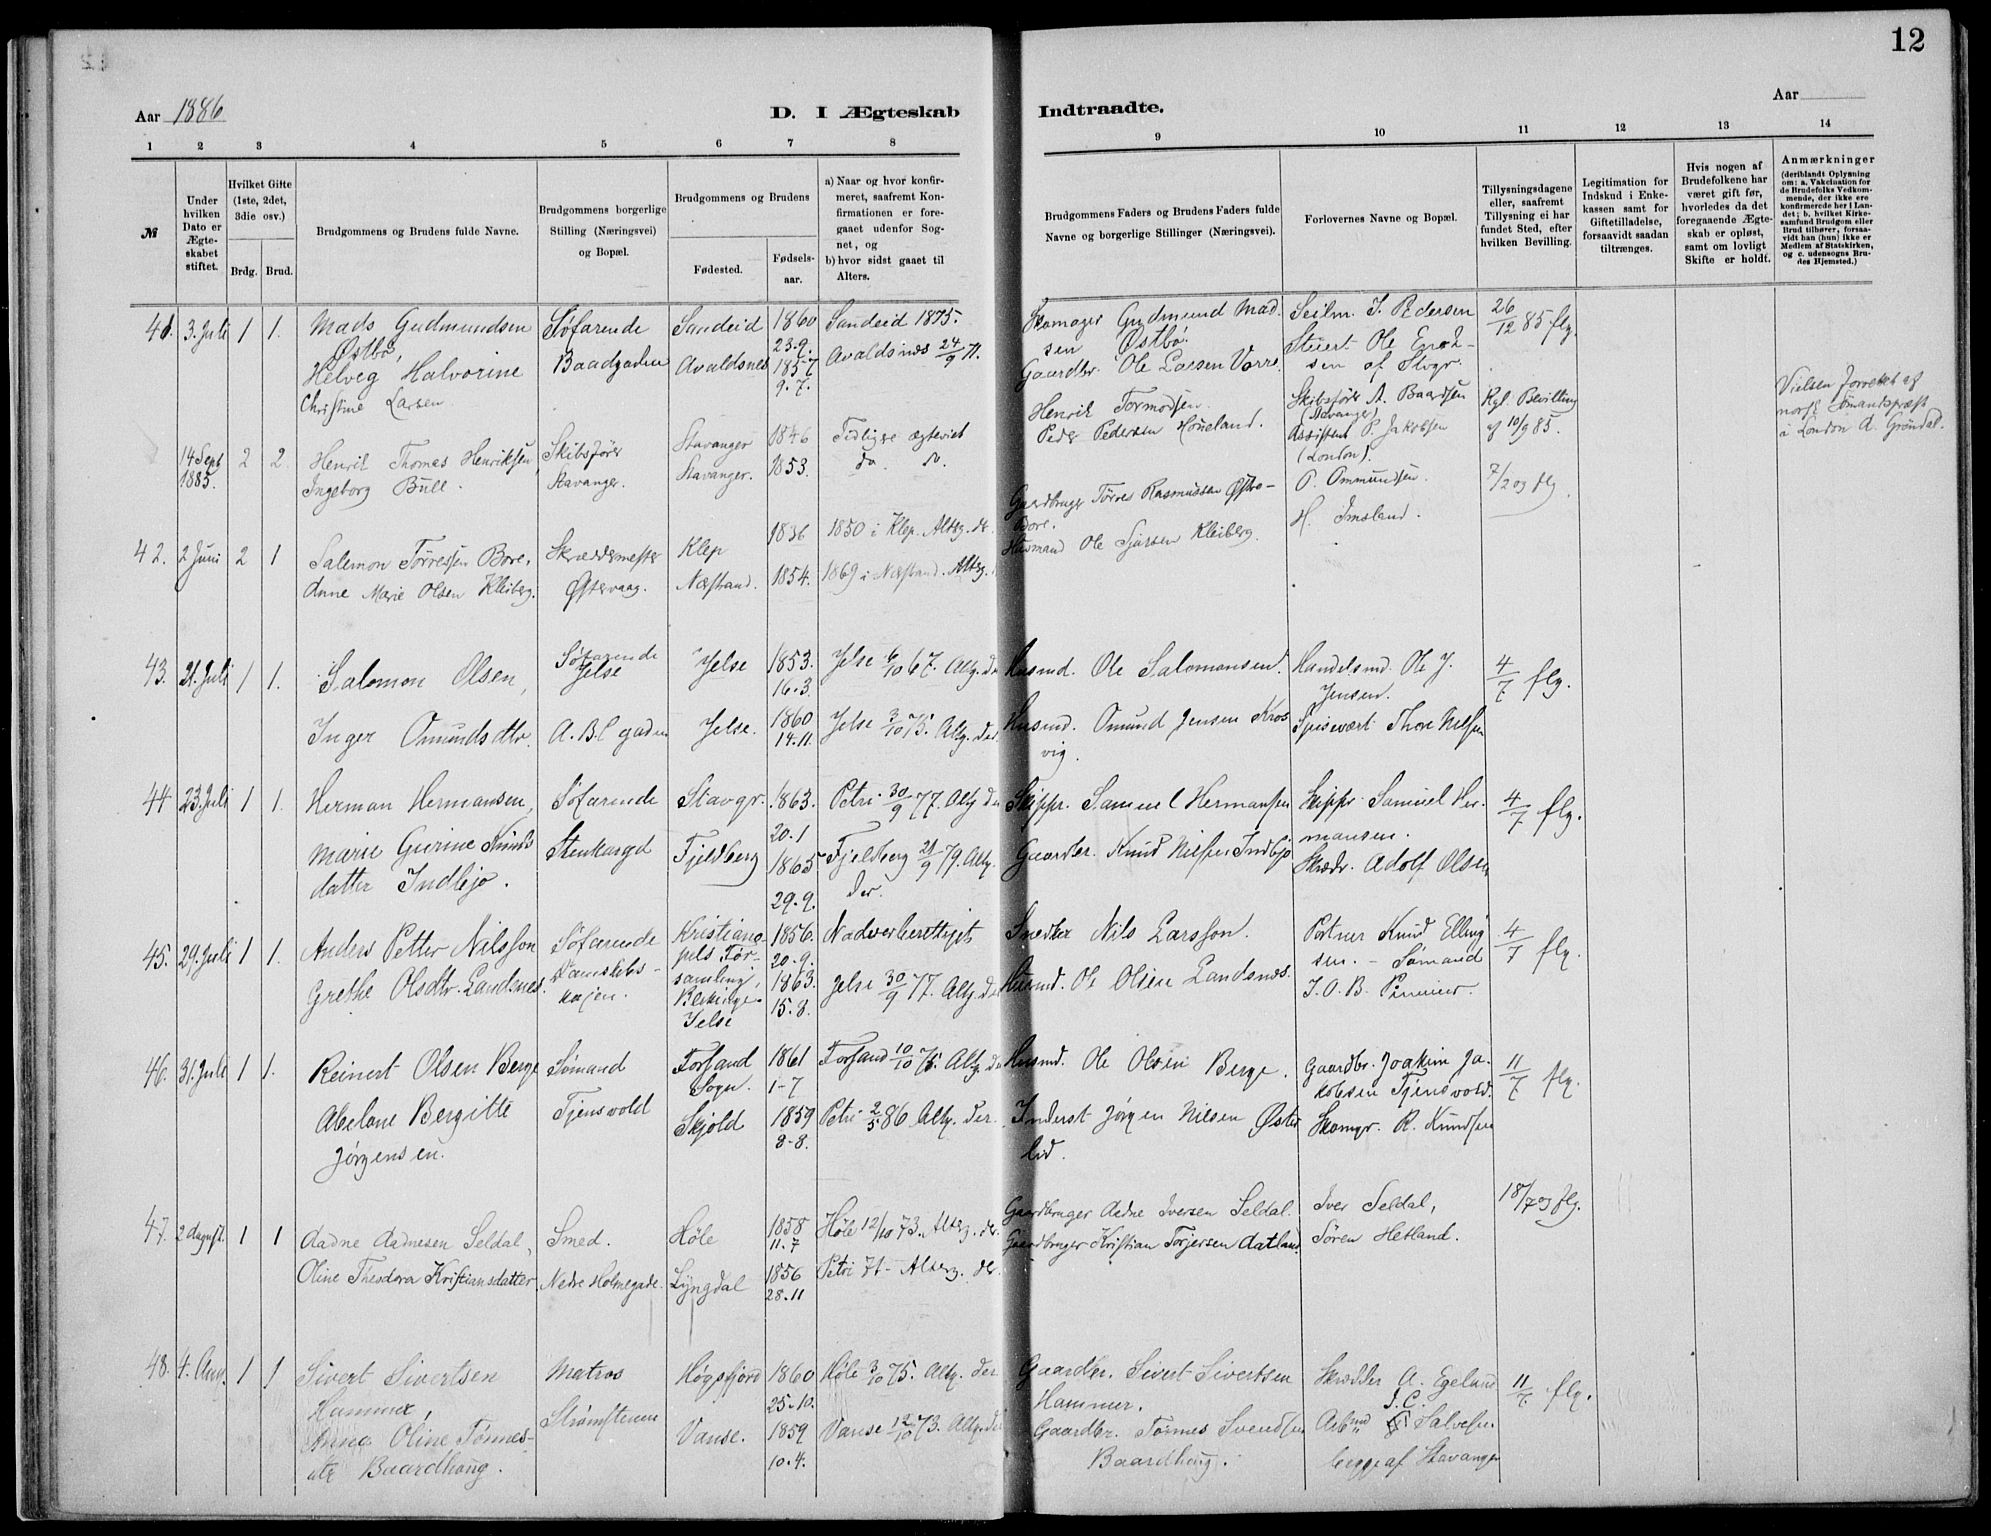 12
Aar 1886
D. I Ægteskab Indtraadte.
Aar
1 2 3 4 5 6 7 8 9 10 11 12 13 14
№
Under hvilken Dato er Ægteskabet stiftet.
Hvilket Gifte (1ste, 2det, 3die osv.)
Brdg. Brud.
Brudgommens og Brudens fulde Navne.
Brudgommens borgerlige Stilling (Næringsvei) og Bopæl.
Brudgommens og Brudens
Fødested.
Fødselsaar.
a) Naar og hvor konfirmeret, saafremt Konfirmationen er foregaaet udenfor Sognet, og
b) hvor sidst gaaet til Alters.
Brudgommens Faders og Brudens Faders fulde Navne og borgerlige Stillinger (Næringsvei).
Forlovernes Navne og Bopæl.
Tillysningsdagene eller, saafremt Tillysning ei har fundet Sted, efter hvilken Bevilling.
Legitimation for Indskud i Enkekassen samt for Giftetilladelse, forsaavidt saadan tiltrænges.
Hvis nogen af Brudefolkene har været gift før, hvorledes da det foregaaende Ægteskab er opløst, samt om lovligt Skifte er holdt.
Anmærkninger
(deriblandt Oplysning om: a. Vakcination for de Brudefolks Vedkommende, der ikke ere konfirmerede her i Landet; b. hvilket Kirkesamfund Brudgom eller Brud tilhører, forsaavidt han (hun) ikke er Medlem af Statskirken, og c. udensogns Brudes Hjemsted.)
41. 3. Juli 1 1.
Mads Gudmundsen
Østbø,
Helveg Halvorine
Christine Larsen
Søfarende
Baadgaden
Sandeid
Avaldsnes
1860
23.9.
1857
9.7.
Sandeid 1875.
Avaldsnes 24/9 71.
Skomager Gudmund Madsen Østbø.
Gaardbr. Ole Larsen
Seilm. J. Pedersen
Stuert Ole Enoksen af Stvgr.
26/12 85 flg.
14 Sept 1885. 2 2.
Henrik Thomas Henriksen
Ingeborg Bull.
Skibsfører
Stavanger.
Stavanger
Stavanger.
1846
1853.
Tidligere ægteviet
do. do.
Henrik Tormodsen
Peder Pedersen Houeland.
Skibsfører A. Baardsen
(Stavanger)
Assistent P. Jakobsen
(London).
Kgl. Bevilling
af 10/9 85.
Vielsen forrettet af
norsk Sømandspræst
i London A. Grøndal.
42. 2 Juni 2 1
Salemon Tørressen Bore,
Anne Marie Olsen Kleiberg.
Skræddermester
Østervaag.
Klep
Næstrand.
1836
1854.
1850 i Klep. Altrg. do.
1869 i Næstrand. Altrg.
Gaardbruger Tørres Rasmussen Østre-
Bore.
Husmand Ole Sjursen Kleiberg.
P. Ommundsen.
H. Imsland.
7/2 og flg.
43. 21. Juli 1 1.
Salomon Olsen,
Inger Omundsdtr.
Søfarende
Jelse
A.B.C gaden
Jelse
Jelse.
1853.
16.3.
1860
14.11.
Jelse 6/10 67. Altg. der
Jelse 3/10 75. Altg. der.
Husmd. Ole Salomonsen.
Husmd. Omund Jensen Krosvig.
Handelsmd. Ole J.
Jensen.
Spisevært Thore Nilsen
4/7 flg.
44. 23. Juli 1 1.
Herman Hermansen,
Marie Gurine Knuds
datter Indbjo.
Søfarende
Stenkargd
Stavgr.
Fjeldberg
1863.
20.1
1865
29.9.
Petri 30/9 77. Altg. der
Fjeldberg 21/9 79. Altg.
der.
Skippr. Samuel Hermansen
Gaardbr. Knud Nilsen Indbjo
Skippr. Samuel Hermansen.
Skrædr. Adolf Olsen
4/7 flg.
45. 29. Juli 1 1.
Anders Petter Nilsson
Grethe Olsdtr. Landsnes.
Søfarende
Dampskibs-
kajen.
Kristiano-
pels For-
samling,
Blekinge
Jelse
1856.
20.9.
1863.
15.8.
Nadverberettiget
Jelse 30/9 77. Altg. der
Snedker Nils Larsson.
Husmd. Ole Olsen Landsnes.
Portner Knud Elling
sen. - Sømand
J.O.B.
4/7 flg.
46. 31. Juli 1 1.
Reinert Olsen Berge
Abelone Bergitte
Jørgensen.
Sømand
Tjensvold
Forsand
Sogn.
Skjold
1861
1-7
1859
8-8.
Forsand 10/10 75. Altg. der
Petri 2/5 86. Altg. der.
Husmd. Ole Olsen Berge.
Inderst Jørgen Nilsen Øster
lid.
Gaardbr. Joakim Ja-
kobsen Tjensvold.
Skomgr. R. Knudsen
11/7 flg.
47. 2 August. 1 1
Aadne Aadnesen Seldal,
Oline Theodora Kristiansdatter
Smed.
Nedre Holmegade.
Høle
Lyngdal
1858
11.7
1856
28.11
Høle 12/10 73. Altrg. der.
Petri 71 - Altrg. der.
Gaardbruger Aadne Iversen Seldal.
Gaardbruger Kristian Torjersen Aatland
Iver Seldal,
Søren Hetland.
18/7 og flg.
48. 4. Aug. 1 1
Sivert Sivertsen
Hammer,
Anna Oline Tønnes-
dtr Baardhoug.
Matros
Strømstenen
Høgsfjord
Vanse.
1860
25.10.
1859
10.4.
Høle 3/10 75. Altg. der
Vanse 12/10 73. Altg. der
Gaardbr. Sivert Sivertsen
Hammer.
Gaardbr. Tønnes Svendsen
Baardhoug.
Skrædder A. Egeland
J.C.
Arbmd Salvesen
begge af Stavanger
11/7 flg.